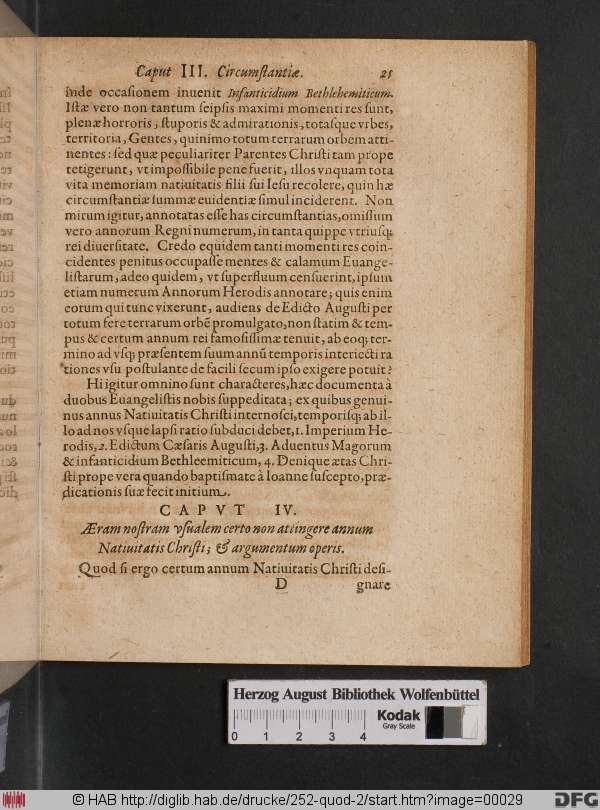 Caput III. Circumstantiæ. 25
inde occasionem inuenit Infanticidium Bethlehemiticum.
Istæ vero non tantum seipsis maximi momenti res sunt,
plenæ horroris, stuporis & admirationis, totasque vrbes,
territoria, Gentes, quinimo totum terrarum orbem atti-
nentes: sed quæ peculiariter Parentes Christi tam prope
tetigerunt, vt impossibile pene fuerit, illos vnquam tota
vita memoriam natiuitatis filii sui Iesu recolere, quin hæ
circumstantiæ summæ euidentiæ simul inciderent. Non
mirum igitur, annotatas esse has circumstantias, omissum
vero annorum Regni numerum, in tanta quippe vtriusq;
rei diuersitate. Credo equidem tanti momenti res coin-
cidentes penitus occupasse mentes & calamum Euange-
listarum, adeo quidem, vt superfluum censuerint, ipsum
etiam numerum Annorum Herodis annotare; quis enim
eorum qui tunc vixerunt, audiens de Edicto Augusti per
totum fere terrarum orbē promulgato, non statim & tem-
pus & certum annum rei famosissimæ tenuit, ab eoq; ter-
mino ad vsq; præsentem suum annū temporis interiecti ra
tiones vsu postulante de facili secum ipso exigere potuit?
Hi igitur omnino sunt characteres, hæc documenta à
duobus Euangelistis nobis suppeditata; ex quibus genui-
nus annus Natiuitatis Christi internosci, temporisq; ab il-
lo ad nos vsque lapsi ratio subduci debet, 1. Imperium He-
rodis, 2. Edictum Cæsaris Augusti, 3. Aduentus Magorum
& infanticidium Bethleemiticum, 4. Denique ætas Chri-
sti prope vera quando baptismate à Ioanne suscepto, præ-
dicationis suæ fecit initium.
CAPVT IV.
Æram nostram vsualem certo non attingere annum
Natiuitatis Christi; & argumentum operis.
Quod si ergo certum annum Natiuitatis Christi desi-
D gnare
Herzog August Bibliothek Wolfenbüttel
0 1 2 3 4
Kodak
Gray Scale
© HAB http://diglib.hab.de/drucke/252-quod-2/start.htm?image=00029
DFG